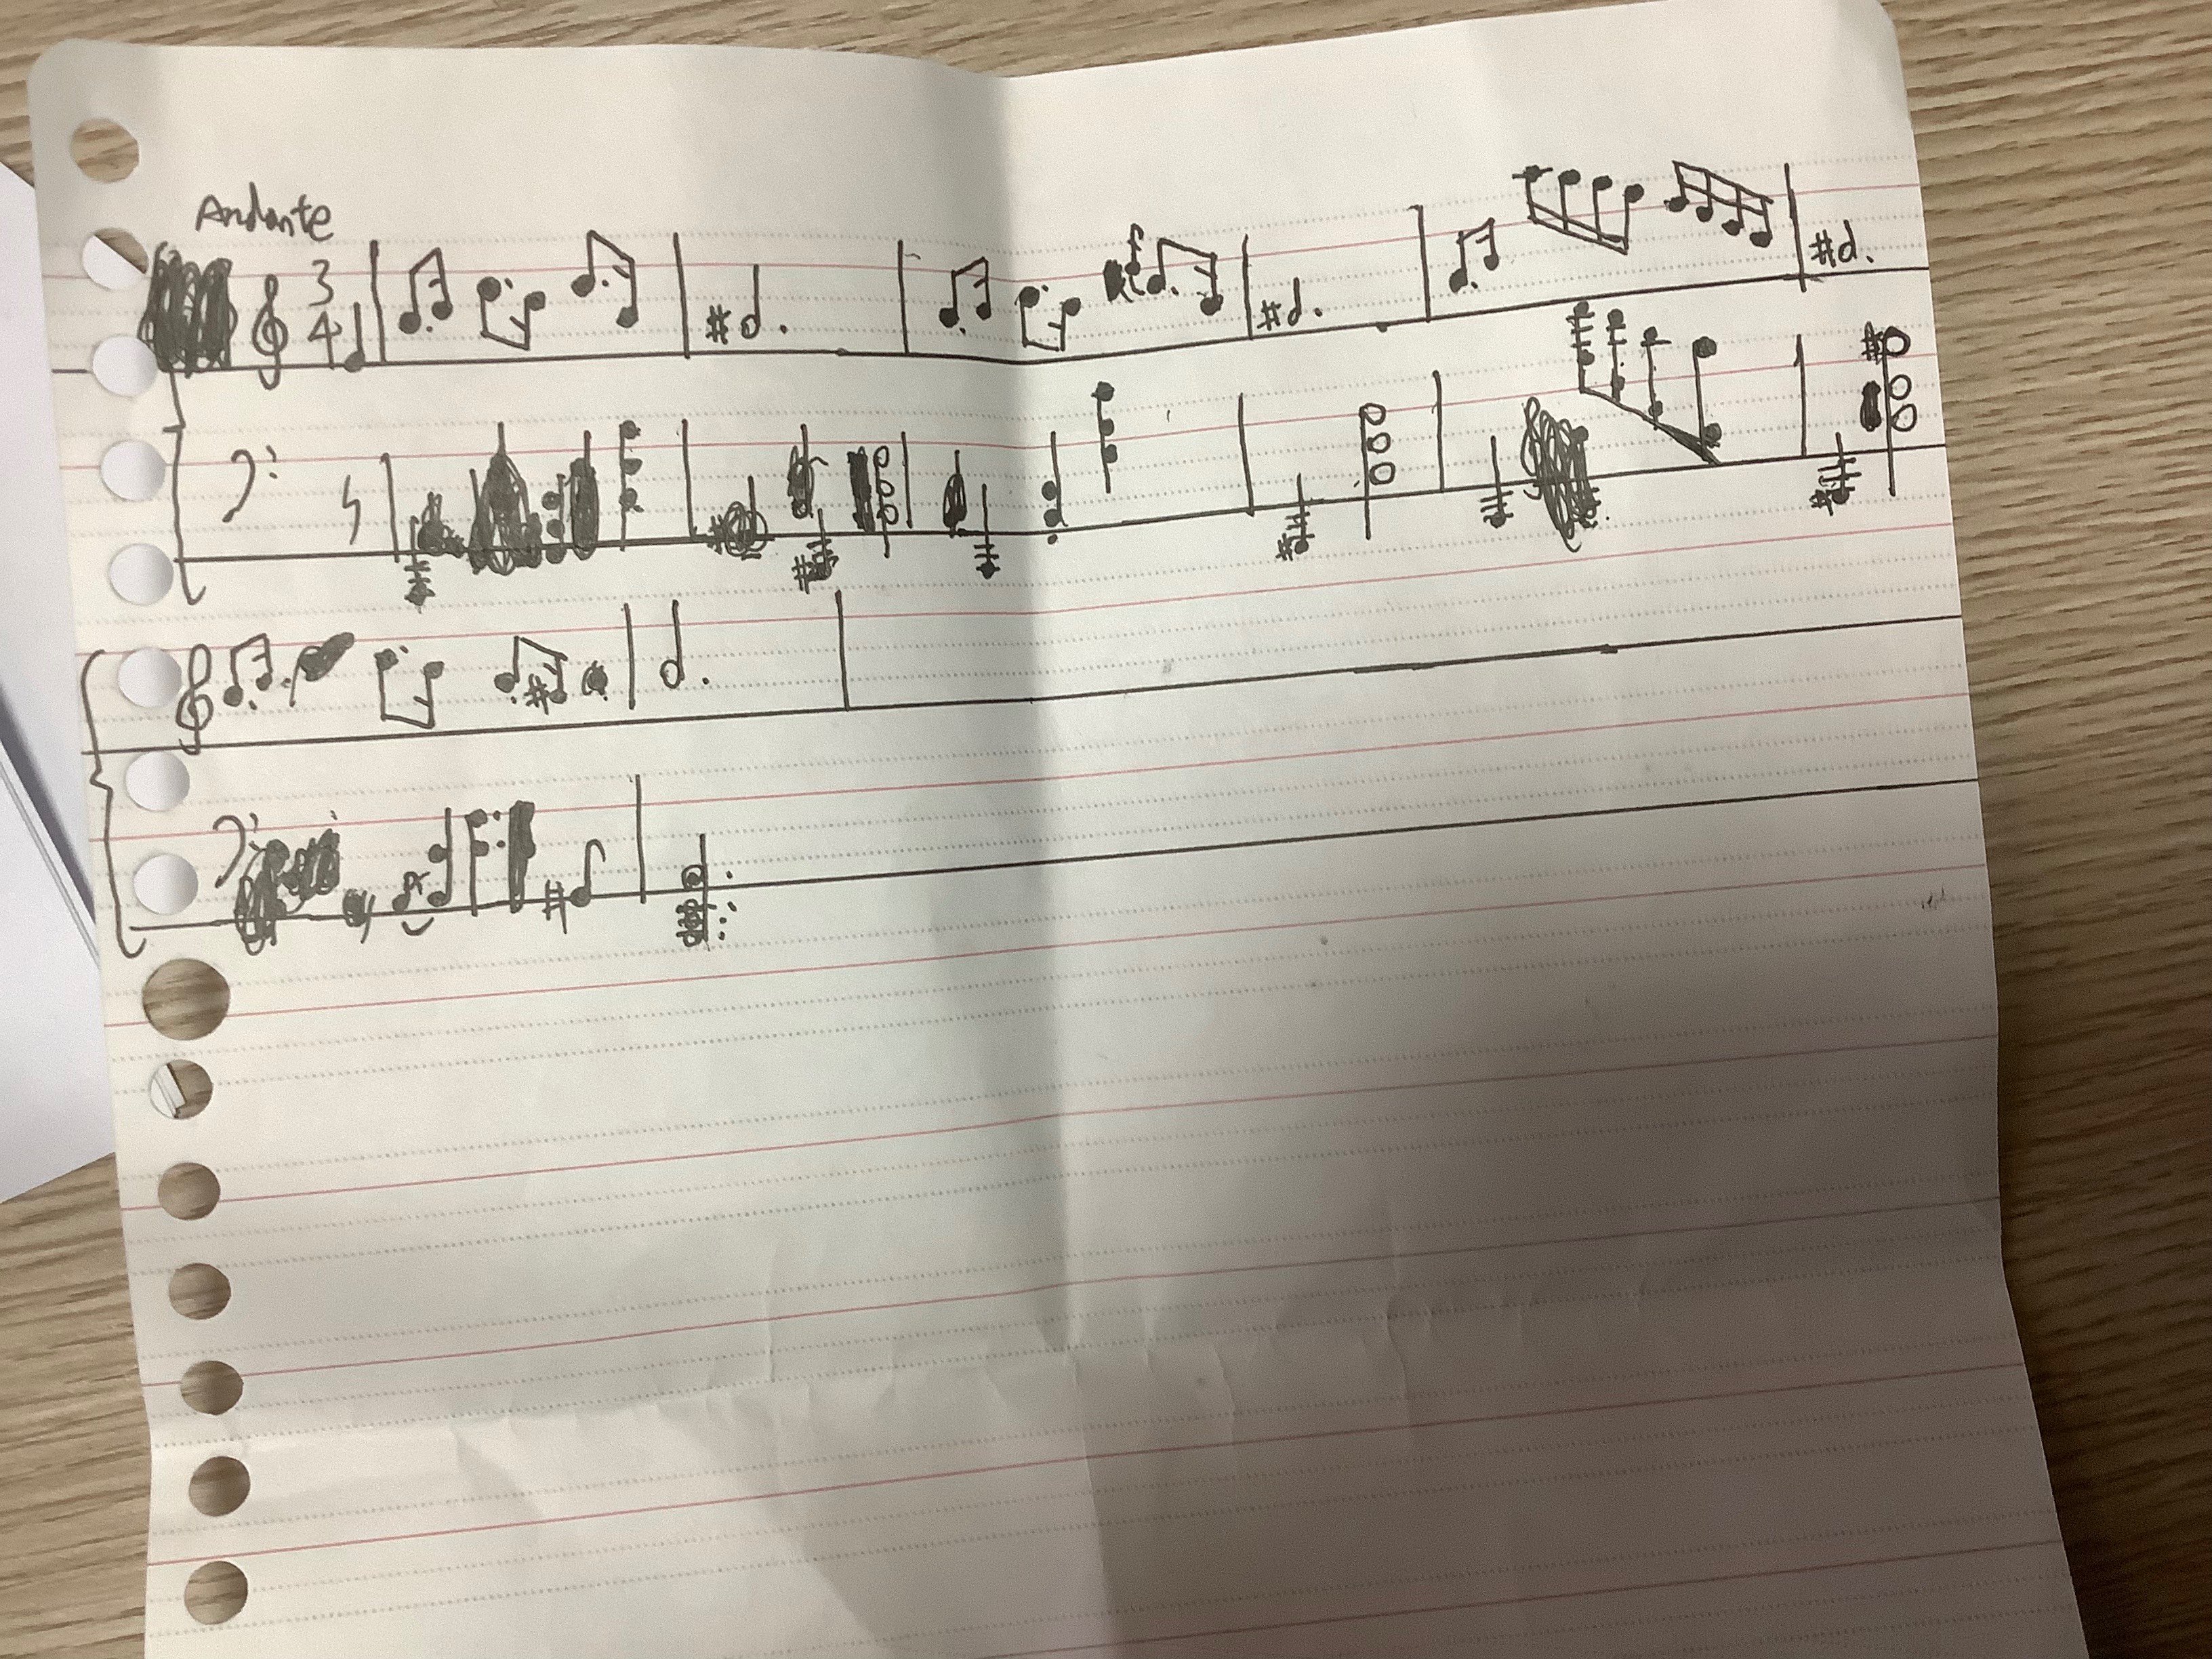 Andante
3
4